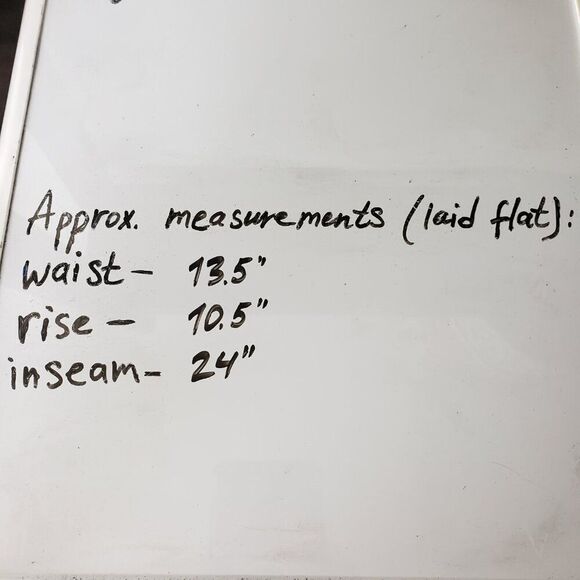 Approx. measurements (laid flat):
waist- 13.5"
rise - 10.5"
inseam- 24"